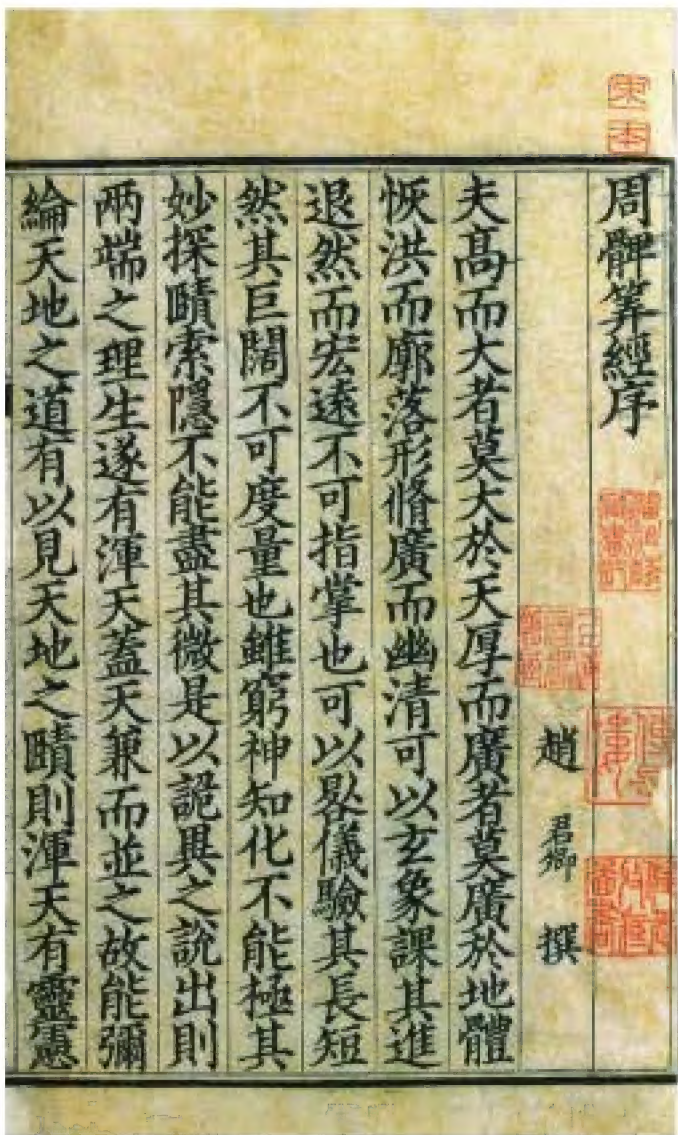 周髀筭經序
趙君卿撰
夫髙而大者莫大於天厚而廣者莫廣於地體
恢洪而廓落形脩廣而幽清可以玄象課其進
退然而宏遠不可指掌也可以晷儀驗其長短
然其巨闊不可度量也雖窮神知化不能極其
妙探賾索隱不能盡其微是以詭異之說出則
兩端之理生遂有渾天蓋天兼而並之故能彌
綸天地之道有以見天地之賾則渾天有靈憲
宋本